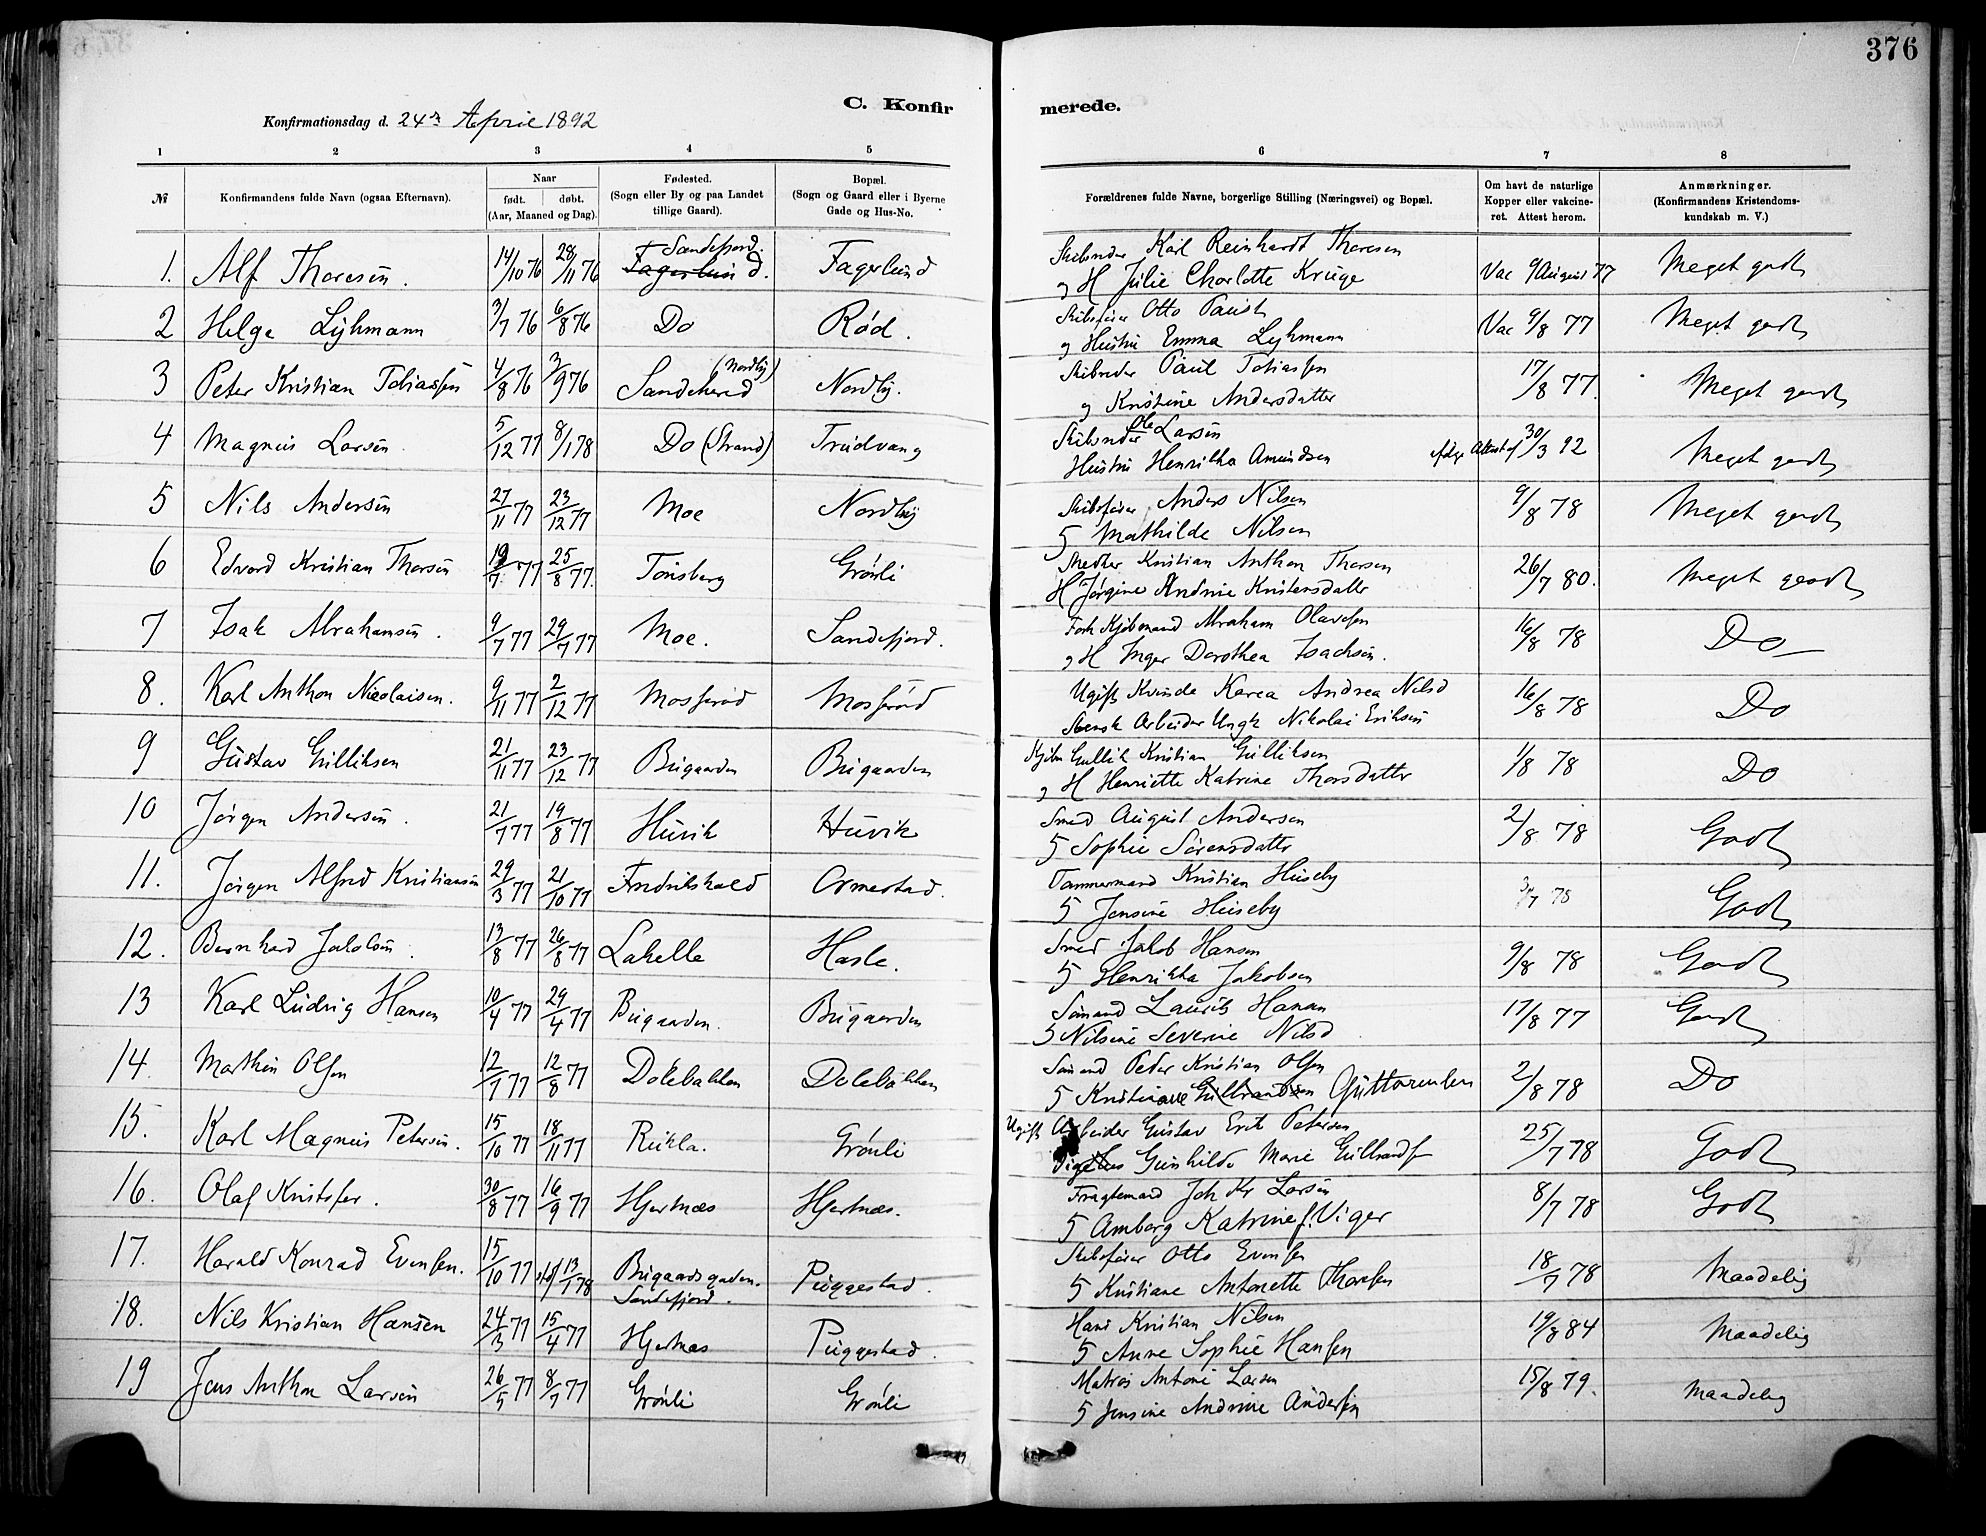 376
C. Konfirmerede.
Konfirmationsdag d. 24de April 1892
1 2 3 4 5 6 7 8
№ Konfirmandens fulde Navn (ogsaa Efternavn). Naar født. døbt. (Aar, Maaned og Dag). Fødested. (Sogn eller By og paa Landet tillige Gaard). Bopæl. (Sogn og Gaard eller i Byerne Gade og Hus-No. Forældrenes fulde Navne, borgerlige Stilling (Næringsvei) og Bopæl. Om havt de naturlige Kopper eller vakcineret. Attest herom. Anmærkninger. (Konfirmandens Kristendomskundskab m. V.)
1. Alf Thoresen. 14/10 76 28/11 76 Sandefjord. Fagerlund. Fagerlund Skibsreder Karl Reinhardt Thoresen
og H Julie Charlotte Kruge Vac 9 August 77 Meget godt
2 Helge Lyhmann 3/7 76 6/8 76 Do Rød. Skibsfører Otto Faust
og Hustru Emma Lyhmann Vac 9/8 77 Meget godt
3 Peter Kristian Tobiassen 4/8 76 3/9 76 Sandeherred (Nordby) Nordby. Skibsreder Paul Tobiassen
og Kristine Andersdatter 17/8 77. Meget godt
4 Magnus Larsen 5/12 77 8/1 78 Do (Strand) Trudvang Skibsreder Ole Larsen
Hustru Henrikka Amundsen ifølge Attest af 30/3 92 Meget godt
5 Nils Andersen 27/11 77 23/12 77 Moe Nordby Skibsfører Anders Nilsen
H Mathilde Nilsen 9/8 78 Meget godt
6 Edvard Kristian Thorsen 19/7 77 25/8 77. Tønsberg Grønli Kristian Anthon Thorsen
H Jørgine Andrine Kristensdatter 26/7 80. Meget godt
7 Isak Abrahamsen. 9/7 77 29/7 77 Moe. Sandefjord. Forh Kjøbmand Abraham Olavesen
og H Inger Dorothea Isachsen. 16/8 78 Do
8. Karl Anthon Nicolaisen. 9/11 77 2/12 77 Mosserød Mosserød Ugift Kvinde Karea Andrea Nilsd
Svensk Arbeider Ungk Nikolai Eriksen 16/8 78 Do
9 Gustav Gulliksen 21/11 77 23/12 77 Bugaarden Bugaarden Kjøbm Gullik Kristian Gulliksen
og H Henriette Katrine Thorsdatter 1/8 78 Do
10 Jørgen Andersen. 21/7 77 19/8 77 Huvik Huvik Smed August Andersen
H Sophie Sørensdatter 2/8 78 Godt
11. Jørgen Alfred Kristiansen 29/3 77 21/10 77 Fredrikshald Ormestad. Tømmermand Kristian Huseby
H Jensine Huseby 3/7 78 Godt
12. Bernhard Jakobsen. 13/8 77 26/8 77 Lahelle Hasle. Smed Jakob Hansen
H Henrikka Jakobsen 9/8 78 Godt
13 Karl Ludvig Hansen 10/4 77 29/4 77 Bugaarden. Bugaarden Sømand Laurits Hansen
H Nilsine Severine Nilsd 17/8 77 Godt
14. Marthin Olsen 12/7 77 12/8 77 Dølebakken Dølebakken Sømand Peder Kristian Olsen
H Kristiane Gulbrandsen Guttormsen 2/8 78 Do
15. Karl Magnus Petersen. 15/10 77 18/11 77 Rukla. Grønli Ugift Arbeider Gustav Erik Petersen
Gunhilde Marie Gulbrands 25/7 78 Godt
16. Olaf Kristofer. 30/8 77 16/9 77 Hjertnæs Hjertnæs. Fragtemand Joh Kr Larsen
H Amborg Katrine f. Viger 8/7 78 Godt
17. Harald Konrad Evensen. 15/10 77 13/1 78 Bugaardsgaden. Sandefjord. Puggestad. Skibsfører Otto Evensen
H Kristiane Antonette Thoresen 18/7 78 Maadelig
18. Nils Kristian Hansen 24/3 77 15/4 77 Hjertnæs Puggestad. Hans Kristian Nilsen
H Anne Sophie Hansen 19/8 84 Maadelig
19 Jens Anthon Larsen 26/5 77 8/7 77 Grønli Grønli Matros Antoni Larsen
H Jensine Andrine Andersen 15/8 79. Maadelig